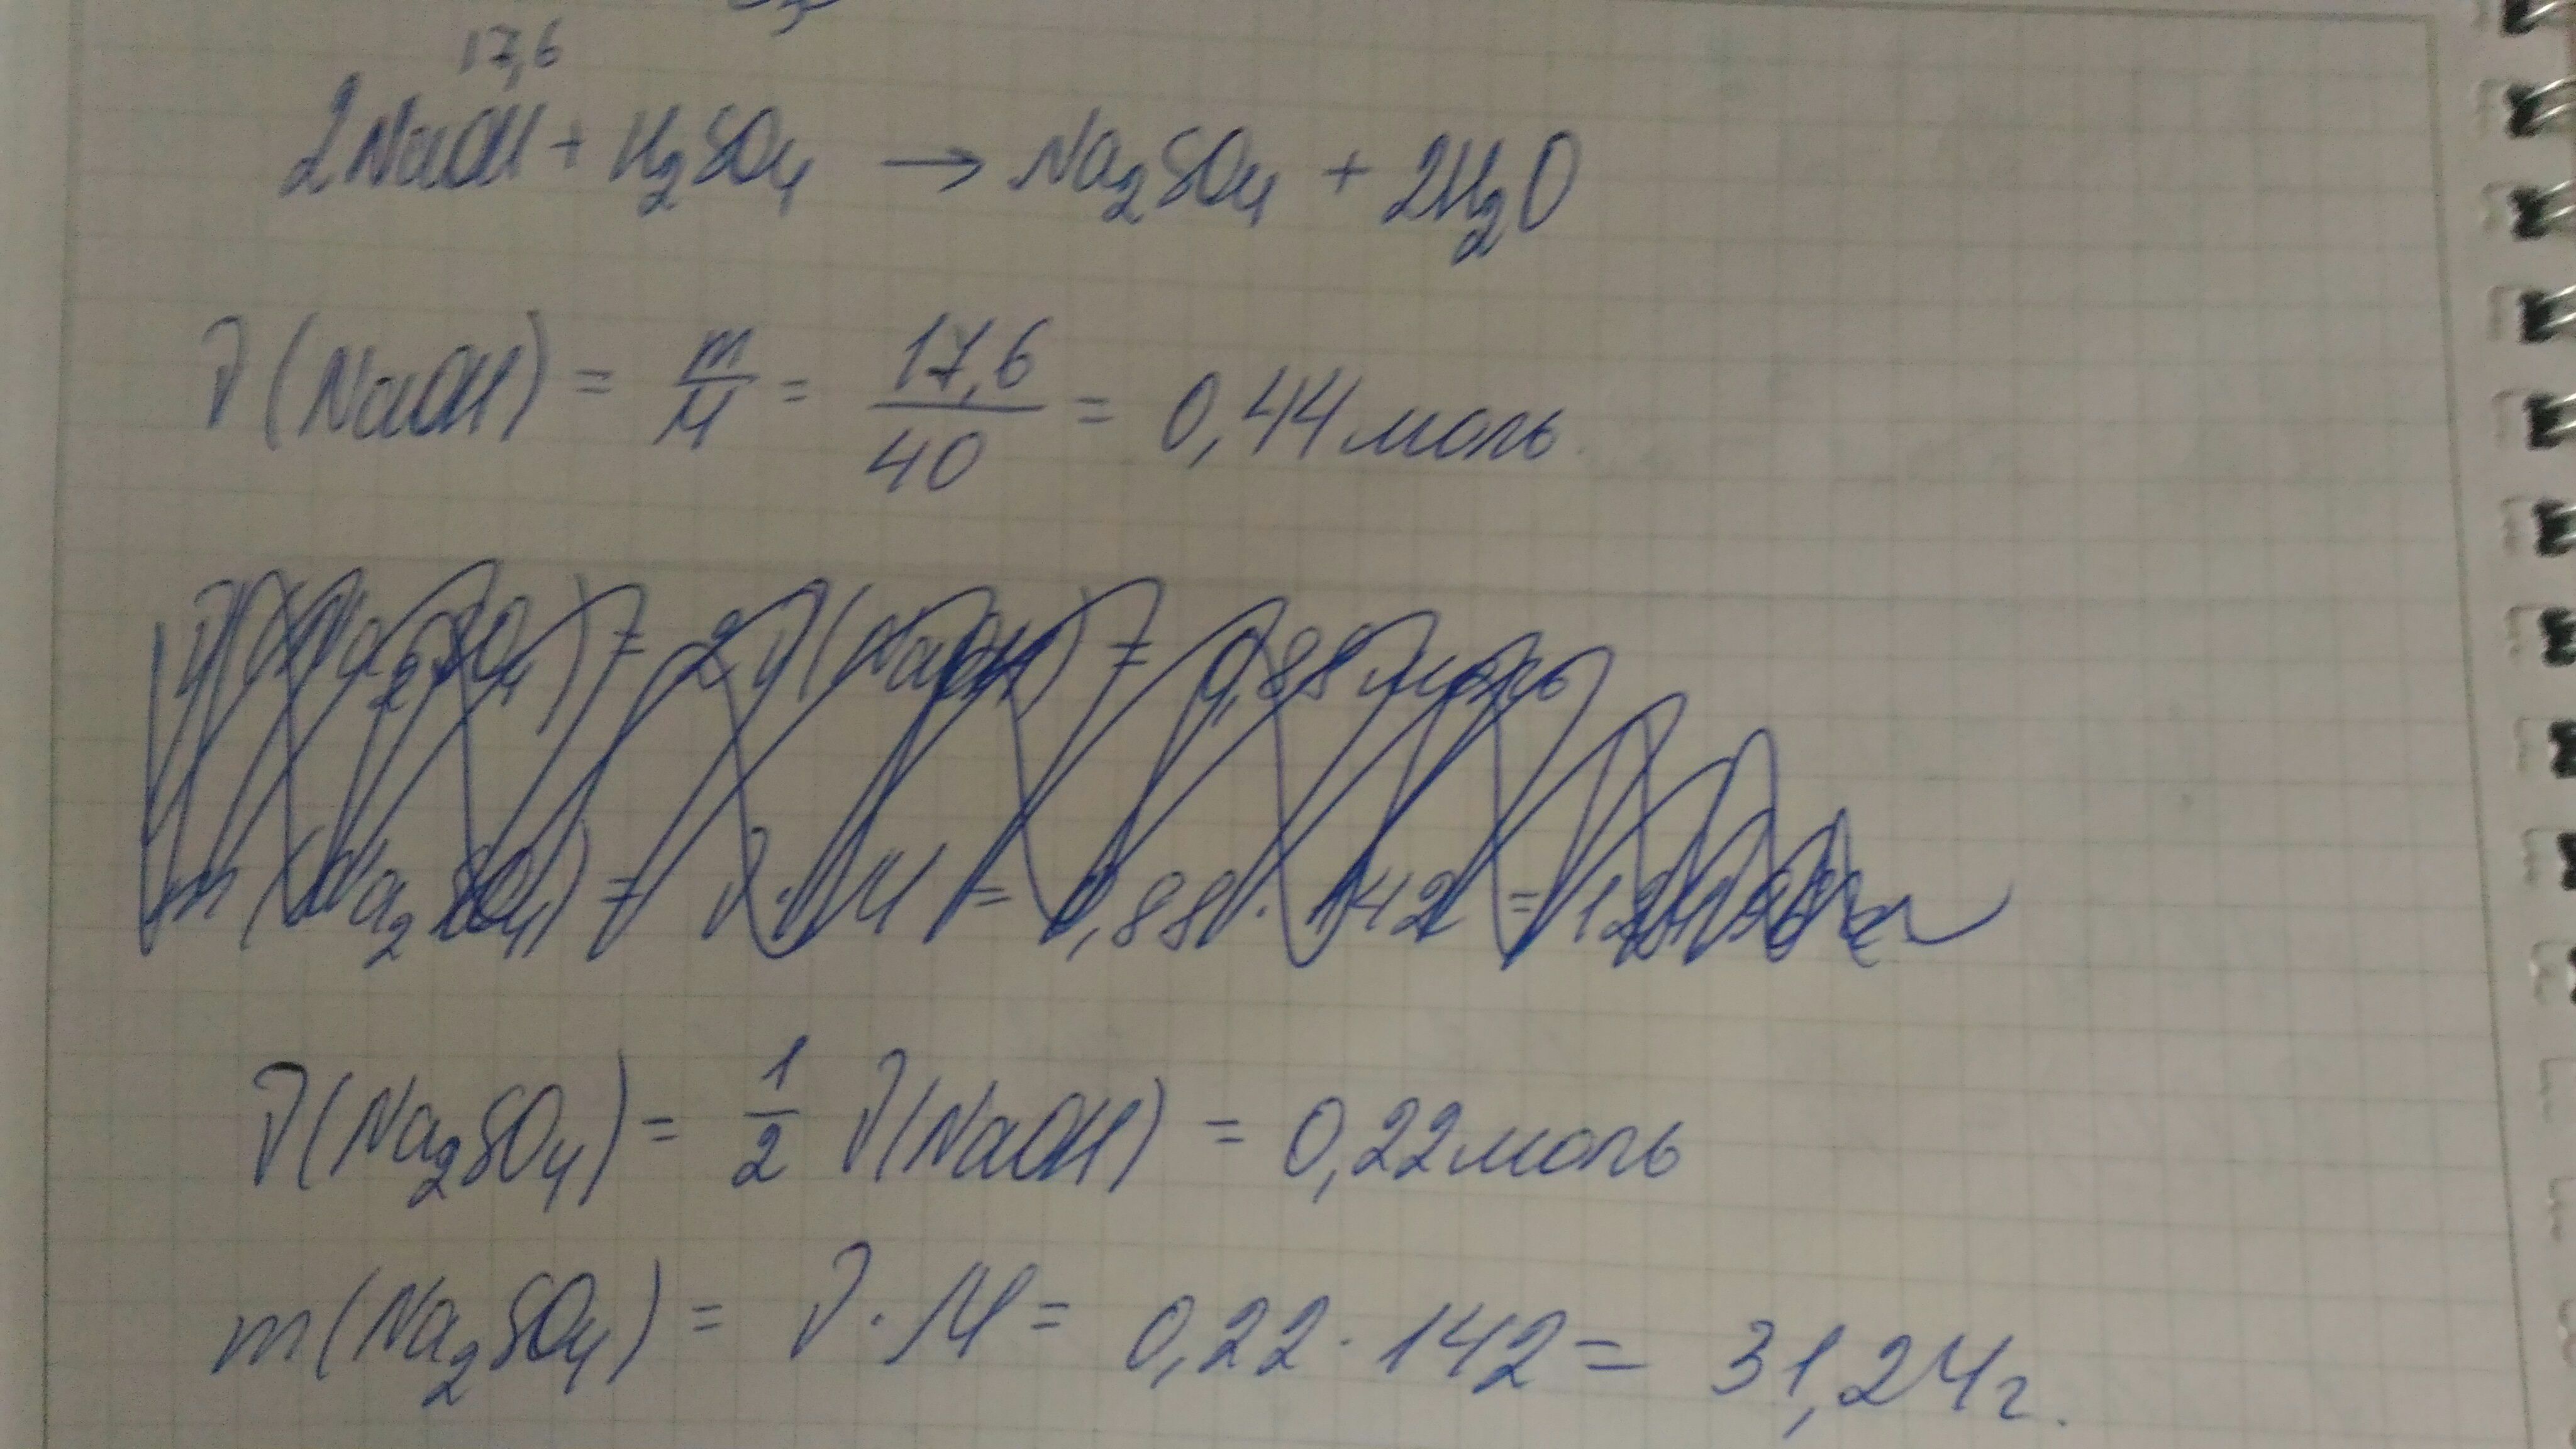 17,6
2NaOH + H₂SO₄ → Na₂SO₄ + 2H₂O
ν(NaOH) = m/M = 17,6/40 = 0,44 моль.
ν(Na₂SO₄) = 2ν(NaOH) = 0,88 моль
m(Na₂SO₄) = ν · M = 0,88 · 142 =
ν(Na₂SO₄) = 1/2 ν(NaOH) = 0,22 моль
m(Na₂SO₄) = ν · M = 0,22 · 142 = 31,24 г.